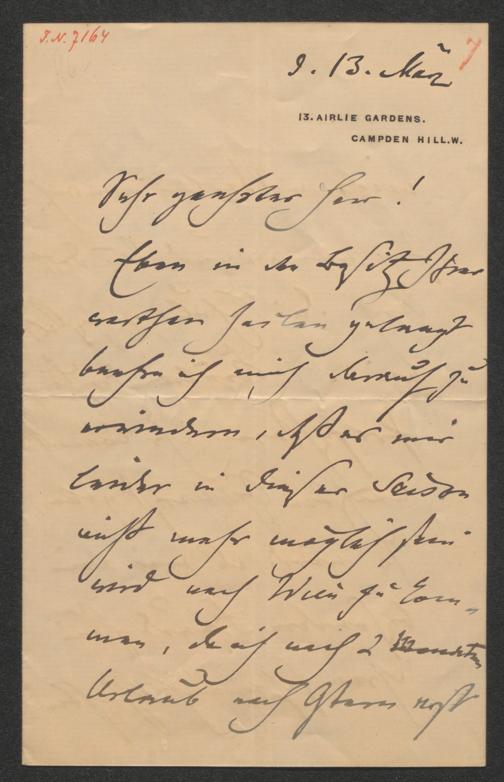 J.N. 7164
7
d. 13. März
13. AIRLIE GARDENS.
CAMPDEN HILL. W.
Sehr geehrter Herr!
Eben in den Besitz Ihrer
werthen Zeilen gelangt
beehre ich mich darauf zu
erwiedern, daß es mir
leider in dieser Saison
nicht mehr möglich sein
wird nach Wien zu kom-
men, da ich nach 2 Monaten
Urlaub nach Ostern erst